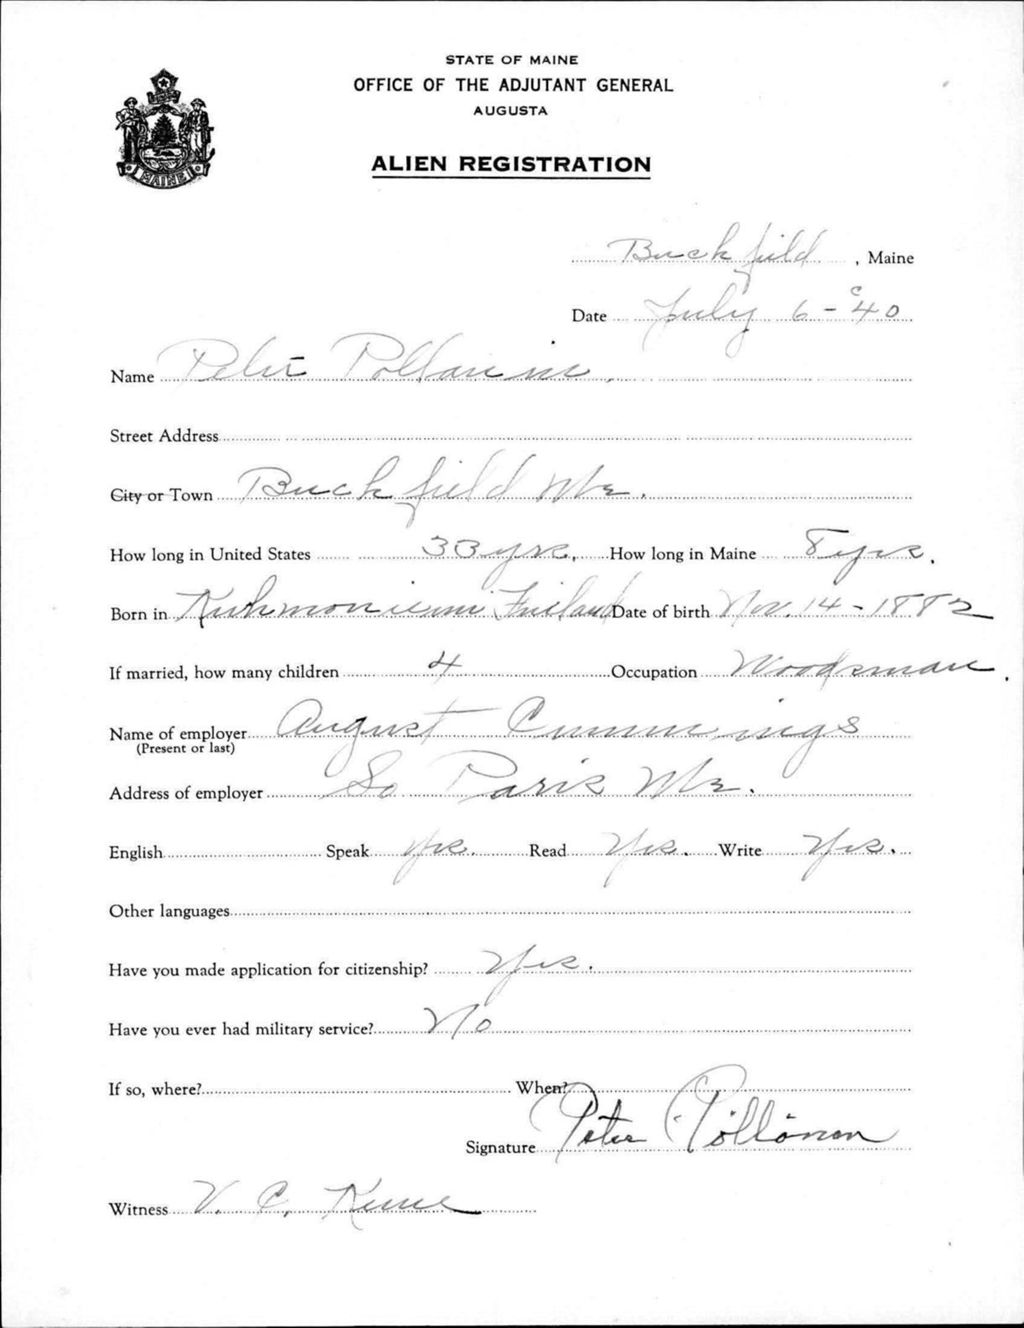 STATE OF MAINE
OFFICE OF THE ADJUTANT GENERAL
AUGUSTA
MAINE
ALIEN REGISTRATION
Buckfield, Maine
Date July 6-40
Name Peter
Street Address
City or Town Buckfield Me.
How long in United States 33 yrs. How long in Maine 8 yrs.
Born in Finland Date of birth Nov. 14-1882
If married, how many children 4 Occupation Woodsman.
Name of employer August Cummings
(Present or last)
Address of employer So Paris Me.
English Speak Yes. Read Yes. Write Yes.
Other languages
Have you made application for citizenship? Yes.
Have you ever had military service? No
If so, where? When?
Signature Peter Pöllönen
Witness V. C.